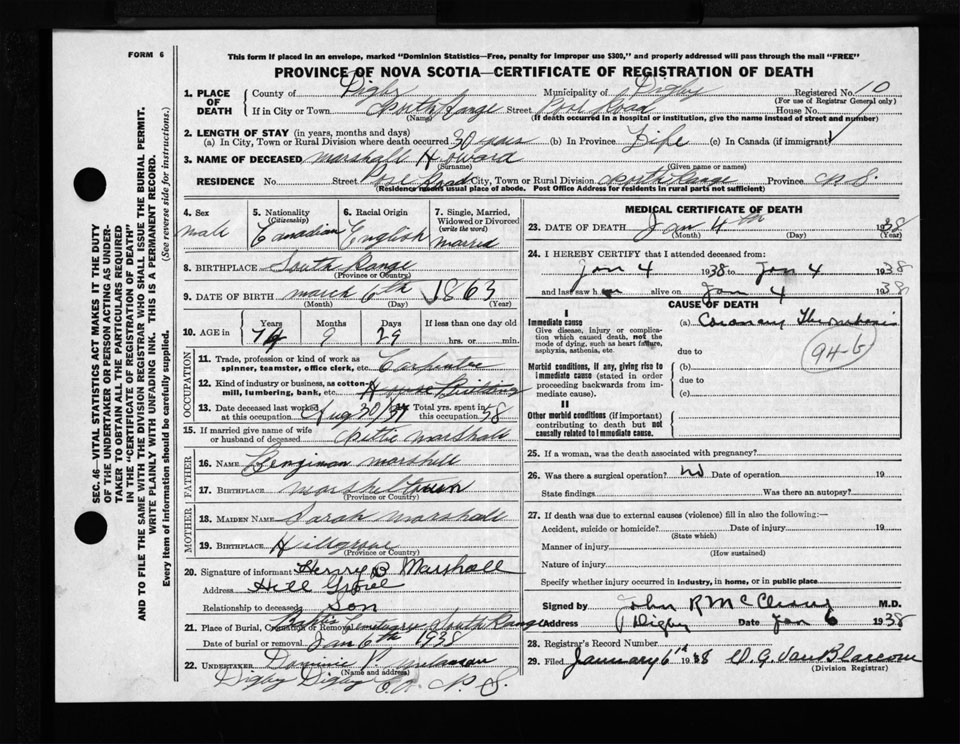 FORM 6
This form if placed in an envelope, marked "Dominion Statistics—Free, penalty for improper use $300," and properly addressed will pass through the mail "FREE"
PROVINCE OF NOVA SCOTIA—CERTIFICATE OF REGISTRATION OF DEATH
SEC. 46—VITAL STATISTICS ACT MAKES IT THE DUTY
OF THE UNDERTAKER OR PERSON ACTING AS UNDER-
TAKER TO OBTAIN ALL THE PARTICULARS REQUIRED
IN THE "CERTIFICATE OF REGISTRATION OF DEATH"
AND TO FILE THE SAME WITH THE DIVISION REGISTRAR WHO SHALL ISSUE THE BURIAL PERMIT.
WRITE PLAINLY WITH UNFADING INK. THIS IS A PERMANENT RECORD.
Every item of information should be carefully supplied. (See reverse side for instructions.)
1. PLACE OF DEATH
County of Digby Municipality of Digby Registered No. 10
(For use of Registrar General only)
If in City or Town North Range Street Road House No.
(Name) (If death occurred in a hospital or institution, give the name instead of street and number)
2. LENGTH OF STAY (in years, months and days)
(a) In City, Town or Rural Division where death occurred 30 years (b) In Province Life (c) In Canada (if immigrant)
3. NAME OF DECEASED Marshall Howard
(Surname) (Given name or names)
RESIDENCE No. Street Road City, Town or Rural Division North Range Province N.S.
(Residence means usual place of abode. Post Office Address for residents in rural parts not sufficient)
4. Sex
male
5. Nationality
(Citizenship)
Canadian
6. Racial Origin
English
7. Single, Married,
Widowed or Divorced
(write the word)
married
8. BIRTHPLACE South Range
(Province or Country)
9. DATE OF BIRTH March 6th 1863
(Month) (Day) (Year)
10. AGE in Years 74 Months 9 Days 29 If less than one day old
hrs. or min.
OCCUPATION
11. Trade, profession or kind of work as
spinner, teamster, office clerk, etc. Carpenter
12. Kind of industry or business, as cotton-
mill, lumbering, bank, etc. House Building
13. Date deceased last worked
at this occupation Aug 30/37 Total yrs. spent in
this occupation 58
15. If married give name of wife
or husband of deceased Marshall
FATHER
16. NAME Benjiman Marshall
17. BIRTHPLACE Marshaltown
(Province or Country)
MOTHER
18. MAIDEN NAME Sarah Marshall
19. BIRTHPLACE Hillgrove
(Province or Country)
20. Signature of informant Henry B Marshall
Address Hill Grove
Relationship to deceased Son
21. Place of Burial, Cremation or Removal Baptis Cemetery North Range
Date of burial or removal Jan 6th 1938
22. UNDERTAKER Dominic P. Melanson
(Name and address)
Digby Digby Co. N.S.
MEDICAL CERTIFICATE OF DEATH
23. DATE OF DEATH Jan 4th 1938
(Month) (Day) (Year)
24. I HEREBY CERTIFY that I attended deceased from:
Jan 4 1938 to Jan 4 1938
and last saw him alive on Jan 4 1938
CAUSE OF DEATH
I
Immediate cause (a) Coronary Thrombosis
Give disease, injury or complica-
tion which caused death, not the
mode of dying, such as heart failure,
asphyxia, asthenia, etc. due to
94-b
Morbid conditions, if any, giving rise to
immediate cause (stated in order
proceeding backwards from im-
mediate cause).
(b)
due to
(c)
II
Other morbid conditions (if important)
contributing to death but not
causally related to immediate cause.
25. If a woman, was the death associated with pregnancy?
26. Was there a surgical operation? No Date of operation 19
State findings Was there an autopsy?
27. If death was due to external causes (violence) fill in also the following:—
Accident, suicide or homicide? Date of injury 19
(State which)
Manner of injury
(How sustained)
Nature of injury
Specify whether injury occurred in industry, in home, or in public place
Signed by John R McCleave M.D.
Address Digby Date Jan 6 1938
28. Registrar's Record Number
29. Filed January 6th 1938 W. G. VanBlarcom
(Division Registrar)